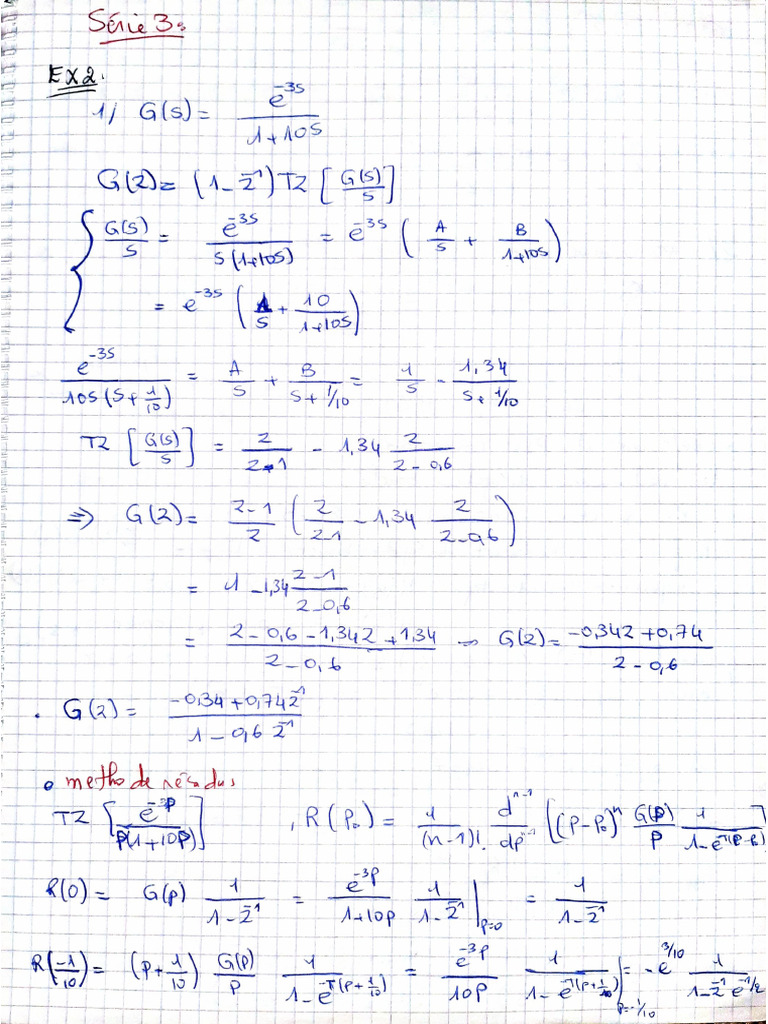 Série 3:
EX2.
1/ G(s) = e^{-3s} / (1+10s)
G(z) = (1 - z^{-1}) TZ [G(s)/s]
G(s)/s = e^{-3s} / (s(1+10s)) = e^{-3s} (A/s + B/(1+10s))
= e^{-3s} (1/s + 10/(1+10s))
e^{-3s} / (10s(s+1/10)) = A/s + B/(s+1/10) = 1/s - 1,34/(s+1/10)
TZ [G(s)/s] = z/(z-1) - 1,34 z/(z-0,6)
=> G(z) = (z-1)/z (z/(z-1) - 1,34 z/(z-0,6))
= 1 - 1,34 (z-1)/(z-0,6)
= (z-0,6-1,34z+1,34)/(z-0,6) → G(z) = (-0,34z+0,74)/(z-0,6)
. G(z) = (-0,34+0,74z^{-1})/(1-0,6z^{-1})
• methode résidus
TZ [e^{-3p}/(p(1+10p))] , R(P₀) = 1/(n-1)! . d^{n-1}/dp^{n-1} [(P-P₀)^n G(p)/p 1/(1-e^{-T(P-P₀)})]
R(0) = G(p) 1/(1-z^{-1}) = e^{-3p}/(1+10p) 1/(1-z^{-1})|_{p=0} = 1/(1-z^{-1})
R(-1/10) = (p+1/10) G(p)/p 1/(1-e^{-T(p+1/10)}) = e^{-3p}/(10p) 1/(1-e^{-T(p+1/10)})|_{p=-1/10} = -e^{3/10} 1/(1-z^{-1}e^{-1/2})